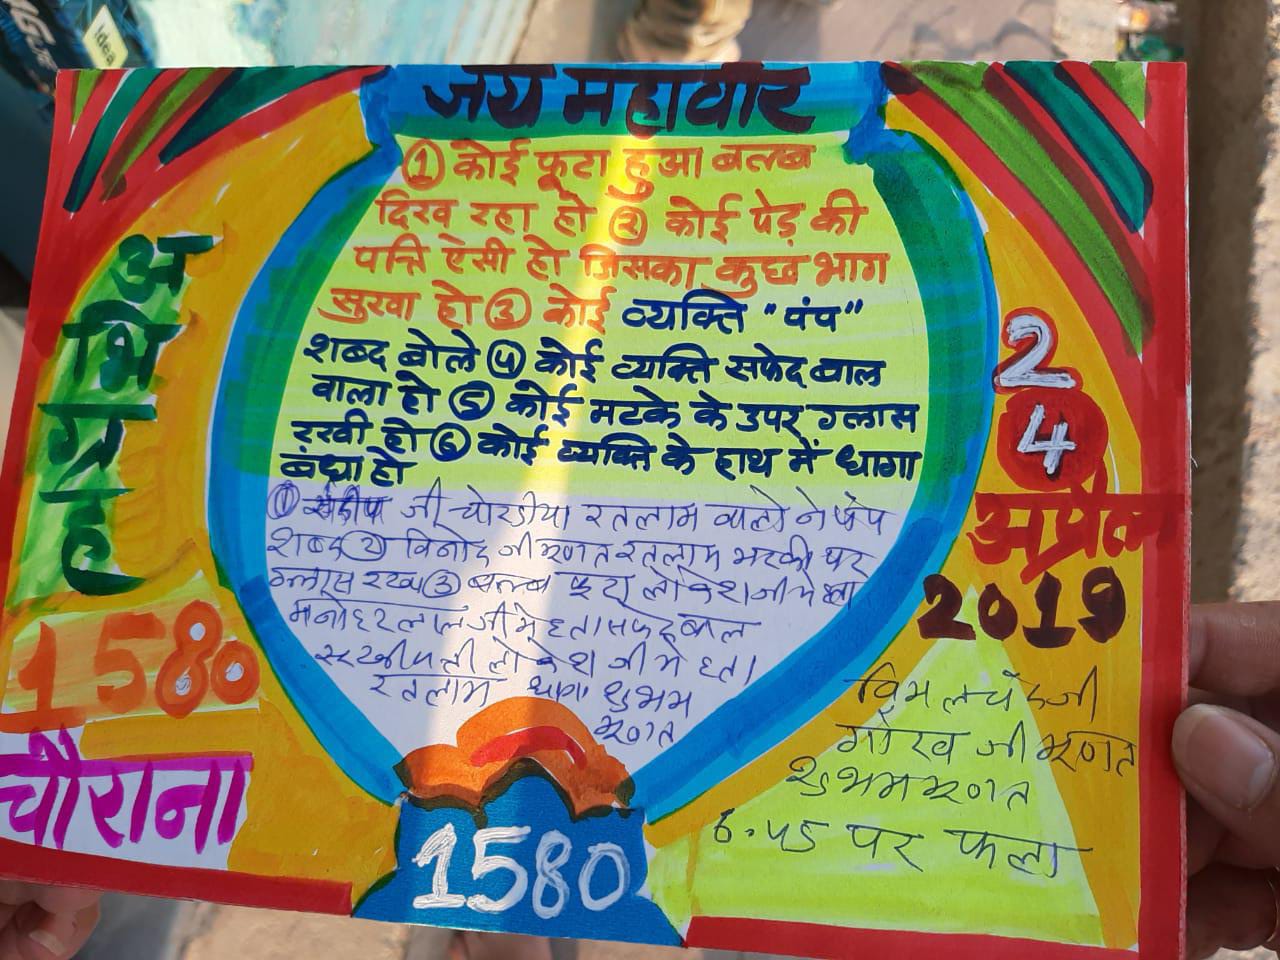 idea
जय महावीर
① कोई फूटा हुआ बल्ब
दिख रहा हो ② कोई पेड़ की
पत्ति ऐसी हो जिसका कुछ भाग
सुखा हो ③ कोई व्यक्ति "पंप"
शब्द बोले ④ कोई व्यक्ति सफेद बाल
वाला हो ⑤ कोई मटके के उपर ग्लास
रखी हो ⑥ कोई व्यक्ति के हाथ में धागा
बंधा हो
① संदीप जी चोरडीया रतलाम वालो ने पंप
शब्द ② विनोद जी भणत रतलाम मटकी पर
ग्लास रखा ③ बल्ब फुटा लोकेश जी मेहता
मनोहरलाल जी मेहता सफेद बाल
सुखी पत्ती लोकेश जी मेहता
रतलाम धागा शुभम
भणत
अभिग्रह
1580
चौराना
24
अप्रैल
2019
विमलचंद जी
गौरव जी भणत
शुभम भणत
6.45 पर फला
1580